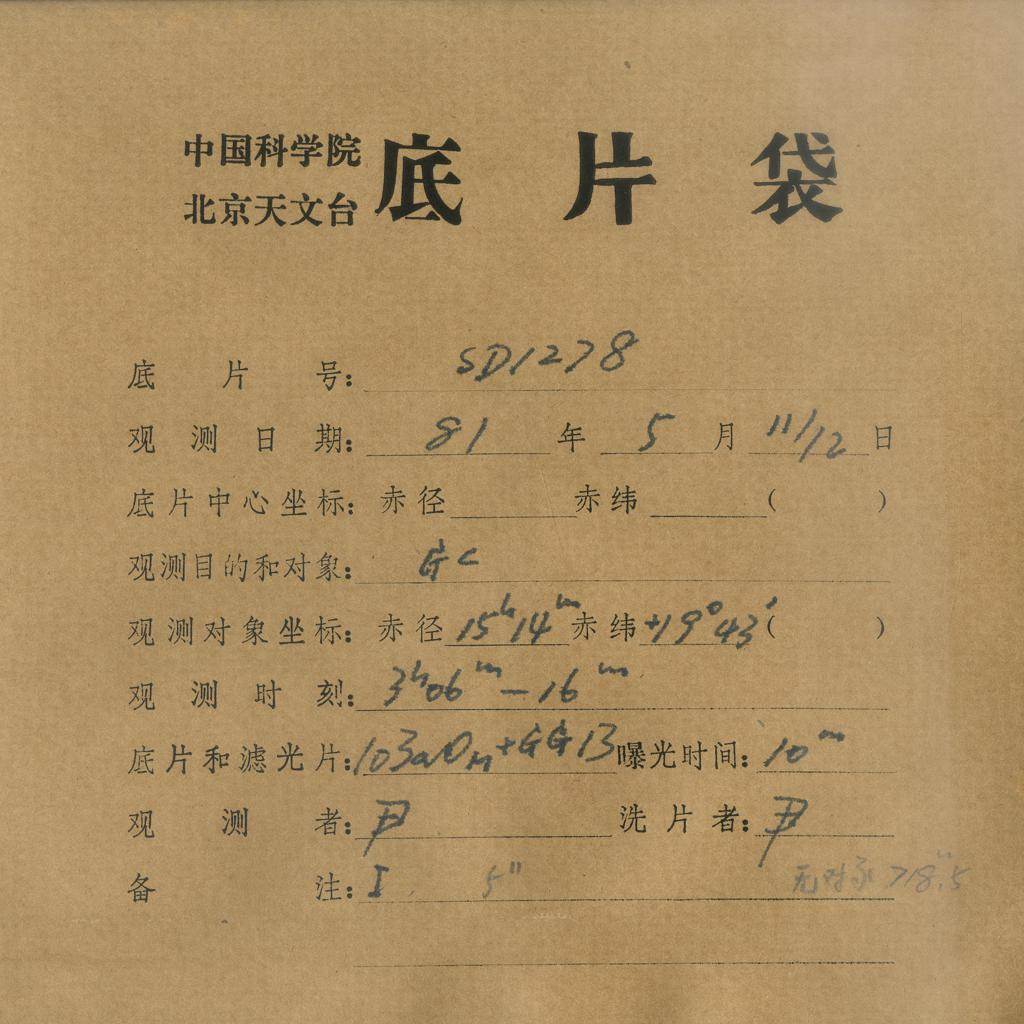 中国科学院
北京天文台 底片袋
底片号：SD1278
观测日期：81年5月11/12日
底片中心坐标：赤径 赤纬 （ ）
观测目的和对象：GC
观测对象坐标：赤径15h14m赤纬+19°43′（ ）
观测时刻：3h06m－16m
底片和滤光片：103aO+GG13曝光时间：10m
观测者：尹 洗片者：尹
备注：I. 5" 无对象>18.5